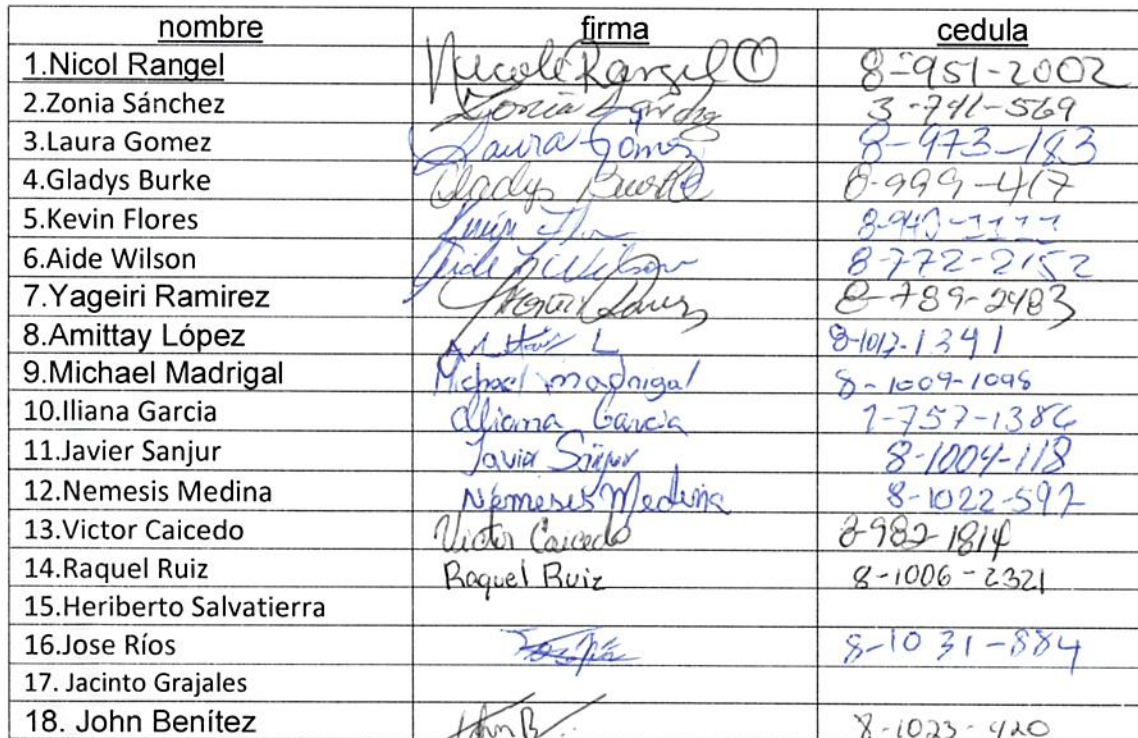 nombre firma cedula
1.Nicol Rangel Nicole Rangel 8-951-2002
2.Zonia Sánchez Zonia Sánchez 3-741-569
3.Laura Gomez Laura Gomez 8-973-183
4.Gladys Burke Gladys Burke 8-999-417
5.Kevin Flores Kevin
6.Aide Wilson Aide Wilson 8-772-2152
7.Yageiri Ramirez 8-789-2483
8.Amittay López L 8-1012-1341
9.Michael Madrigal Michael madrigal 8-1009-1098
10.Iliana Garcia Iliana Garcia
11.Javier Sanjur Javier Sanjur 8-1004-118
12.Nemesis Medina Nemesis Medina 8-1022-597
13.Victor Caicedo Victor Caicedo 8-982-1814
14.Raquel Ruiz Raquel Ruiz 8-1006-2321
15.Heriberto Salvatierra
16.Jose Ríos 8-1031-884
17. Jacinto Grajales
18. John Benítez John B. 8-1023-420